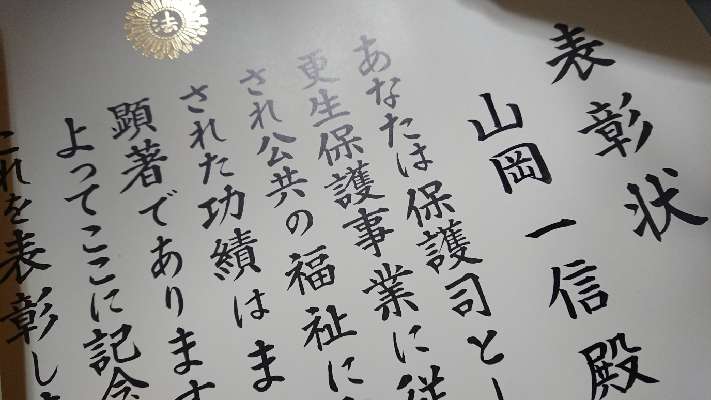 表彰状
山岡一信殿
あなたは保護司とし
更生保護事業に従
され公共の福祉に
された功績はま
顕著であります
よってここに記念
これを表彰しま
法